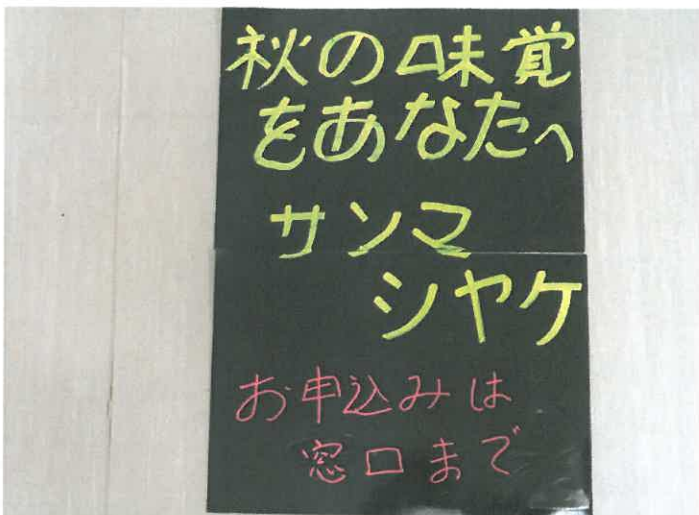 秋の味覚
をあなたへ
サンマ
シヤケ
お申込みは
窓口まで